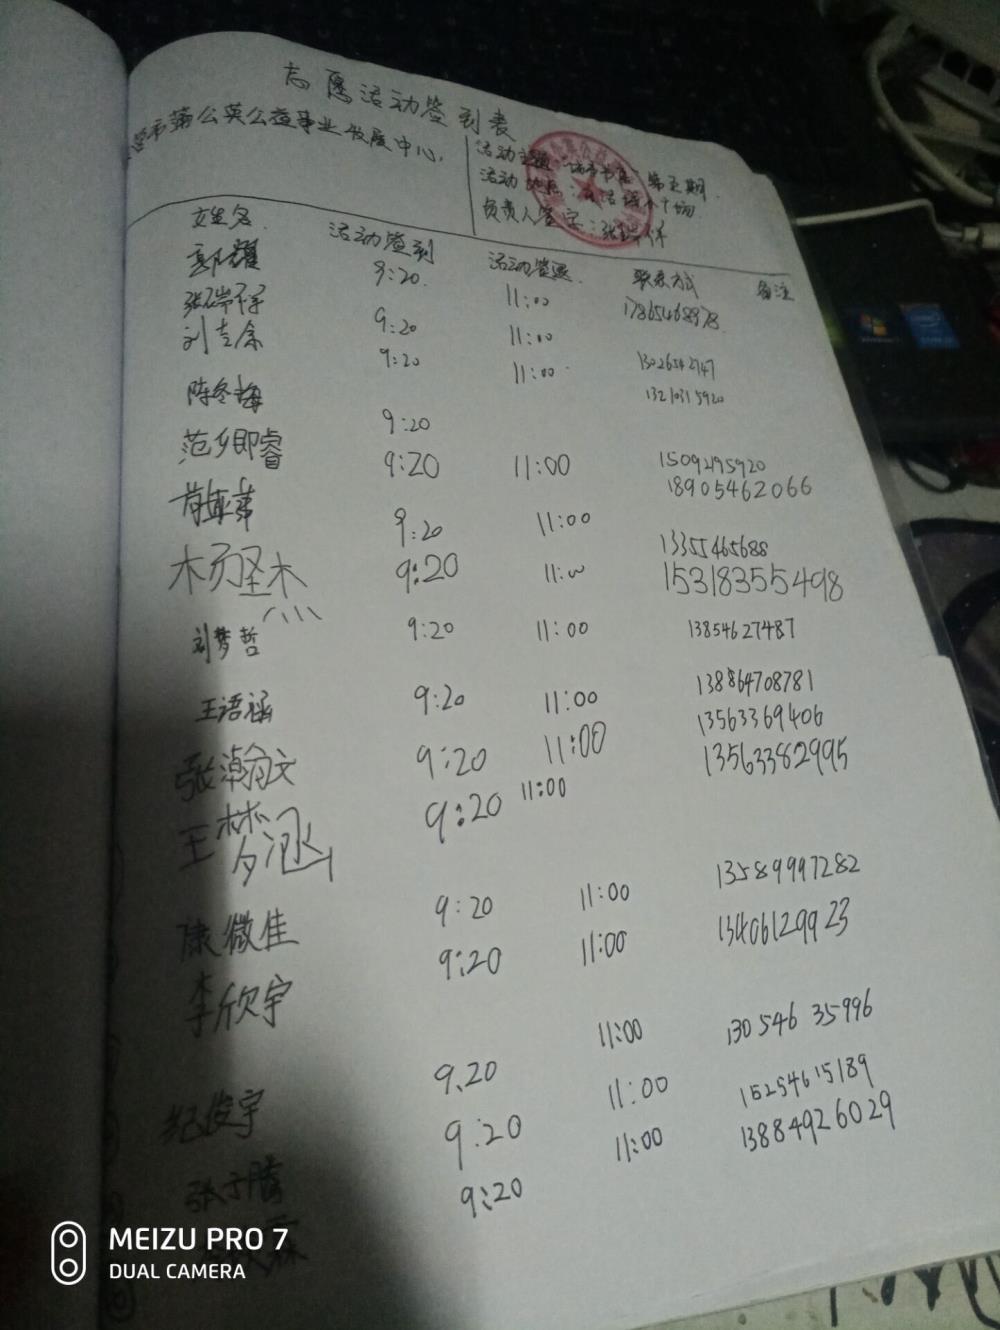 志愿活动签到表
营市蒲公英公益事业发展中心
活动主题：城市书 第五期
活动地点：生活
负责人签字：张
姓名 活动签到 活动签退 联系方式 备注
郭耀 9:20 11:00 17865468978
张 9:20 11:00 13026542747
刘 9:20 11:00 13210315920
陈冬梅 9:20
范乡即睿 9:20 11:00 15092495920
9:20 11:00 18905462066
杨 9:20 11:00 13355465688
15318355498
刘梦哲 9:20 11:00 13854627487
王语涵 9:20 11:00 13864708781
张瀚文 9:20 11:00 13563369406
王梦涵 9:20 11:00 13563382995
康微佳 9:20 11:00 13589997282
李欣宇 9:20 11:00 13406129923
纪俊宇 9.20 11:00 130 546 35996
张子腾 9:20 11:00 15254615189
霖 9:20 11:00 13884926029
MEIZU PRO 7
DUAL CAMERA